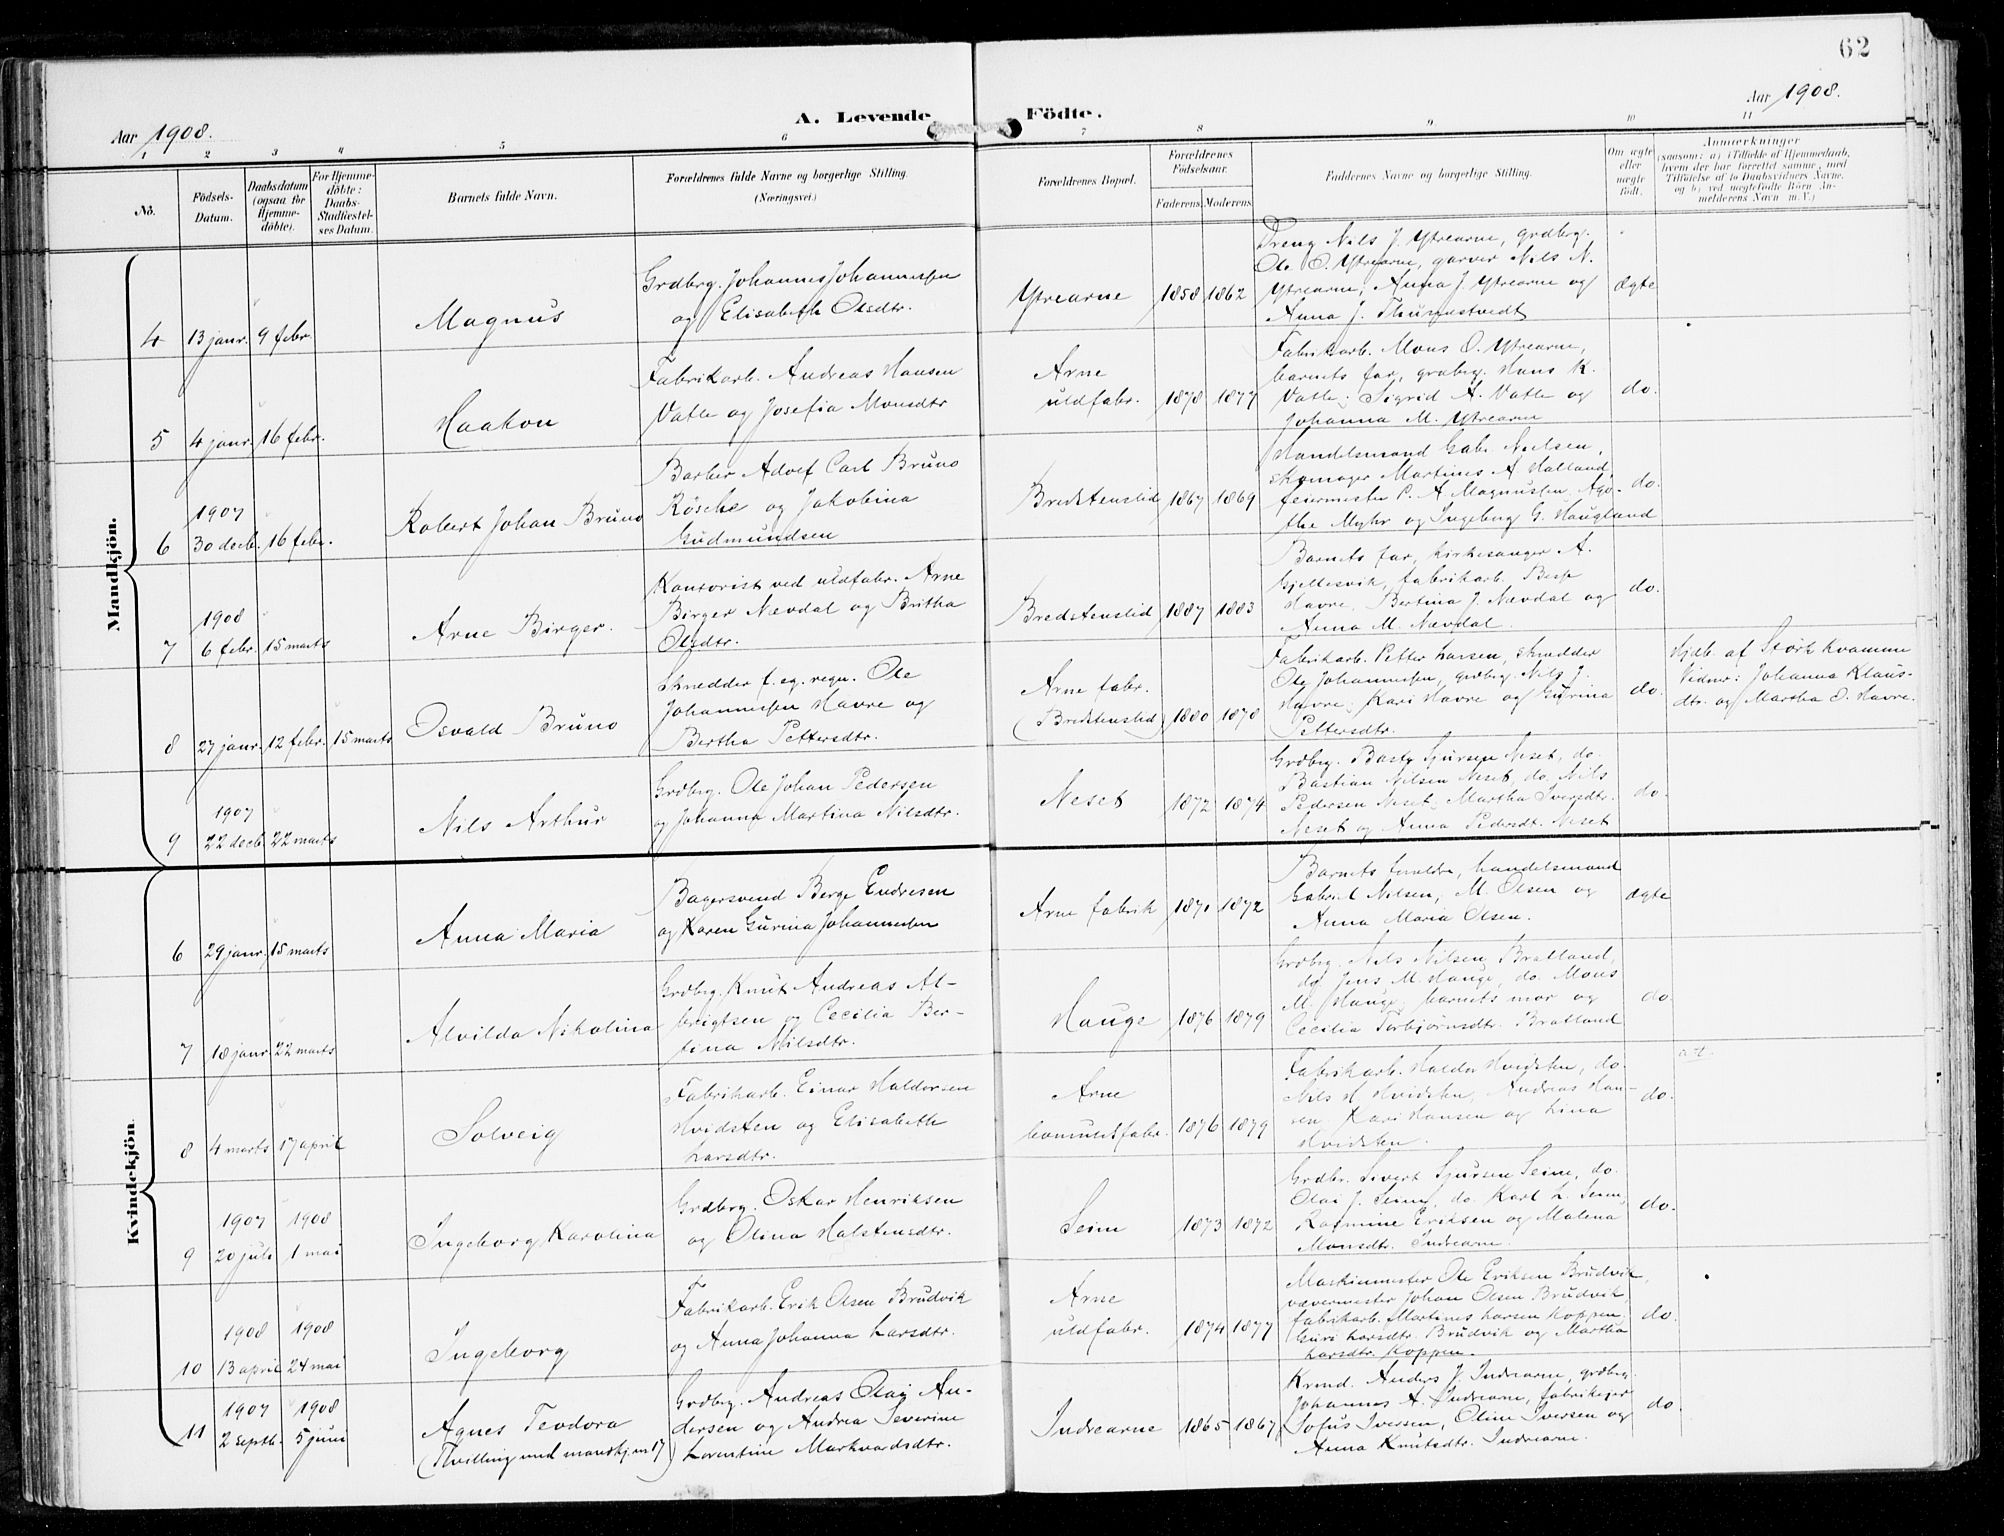 62
Aar 1908.
A. Levende
Födte.
Aar 1908.
1
2
3
4
5
6
7
8
9
10
11
No.
Födsels-
Datum.
Daabsdatum
(ogsaa for
Hjemme-
döbte).
For Hjemme-
döbte:
Daabs-
Stadfæstel-
ses Datum.
Barnets fulde Navn.
Forældrenes fulde Navne og borgerlige Stilling.
(Næringsvei.)
Forældrenes Bopæl.
Forældrenes
Födselsaar.
Faderens
Moderens
Faddernes Navne og borgerlige Stilling.
Om ægte
eller
uægte
født.
Anmærkninger
(saasom: a) i Tilfælde af Hjemmedaab,
hvem der har forrettet samme, med
Tilföielse af to Daabsvidners Navne,
og b) ved uægtefödte Börn An-
melderens Navn m. V.)
Mandkjön.
4
13 janr.
9 febr.
Magnus
Grdbrg. Johannes Johannessen
og Elisabeth Olsdtr.
Ytrearne
1858
1862
Dreng Nils J. Ytrearne, grdbrg.
Ole O. Ytrearne, garver Nils N.
Ytrearne; Anna J. Ytrearne og
Anna J. Thunestvedt
ægte
5
4 janr.
16 febr.
Haakon
Fabrikarb. Andreas Hansen
Vatle og Josefia Monsdtr
Arne
uldfabr.
1878
1877
Fabrikarb. Mons O. Ytrearne,
barnets far, grdbrg. Hans K.
Vatle; Sigrid A. Vatle og
Johanna M. Ytrearne
do.
6
1907
30 decb.
16 febr.
Robert Johan Bruno
Barber Adolf Carl Bruno
Røsche og Jakobina
Gudmundsen
Bredstenslid
1867
1869
Handelsmand Gabr. Nielsen,
skomager Martines A. Halland,
feiermester P. A Magnussen, Aga-
the Myhr og Ingeborg G. Haugland
do.
7
1908
6 febr.
15 marts
Arne Birger.
Kontorist ved uldfabr. Arne
Birger Nævdal og Britha
Olsdtr.
Bredstenslid
1887
1883
Barnets far, kirkesanger A.
Gjellesvik, fabrikarb. Besse
Havre, Bertina J. Nævdal og
Anna M. Nævdal.
do.
8
27 janr.
12 febr.
15 marts
Osvald Bruno
Skredder f. eg. regn. Ole
Johannessen Havre og
Bertha Pettersdtr.
Arne fabr.
(Bredstenslid)
1880
1878
Fabrikarb. Petter Larsen, skredder
Ole Johannessen, grdbrg. Nils J.
Havre; Kari Havre og Gurina
Pettersdtr.
do.
Hjdb. af Størk Kvamme
Vidner: Johanna Klaus-
dtr. og Martha O. Havre.
9
1907
22 decb.
22 marts
Nils Arthur
Grdbrg. Ole Johan Pedersen
og Johanna Martina Nilsdtr.
Neset
1872
1874
Grdbrg. Sjursen Neset, do.
Bastian Nilsen Neset, do. Nils
Pedersen Neset; Martha Iversdtr.
Neset og Anna Pedersdt. Neset
do.
Kvindekjön.
6
29 janr.
15 marts
Anna Maria
Bagersvend Berge Endresen
og Karen Gurina Johannessen
Arne fabrik
1871
1872
Barnets forældre, handelsmand
Gabriel Nilsen, M. Olsen og
Anna Maria Olsen.
ægte
7
18 janr.
22 marts
Alvilda Nikolina
Grdbrg. Knut Andreas Al-
brigtsen og Cecilia Ber-
tina Nilsdtr.
Hauge
1876
1879
Grdbrg. Nils Nilsen Bratland,
do Jens M. Hauge, do. Mons
M. Hauge; barnets mor og
Cecilia Torbjørnsdtr. Bratland
do.
8
4 marts
17 april
Solveig
Fabrikarb. Einar Haldorsen
Hvidsten og Elisabeth
Larsdtr.
Arne
bomuldsfabr.
1876
1879
Fabrikarb. Haldor Hvidsten, do.
Nils H. Hvidsten, Andreas Han-
sen, Kari Hansen og Lina
Hvidsten.
do.
9
1907
20 juli
1908
1 mai
Ingeborg Karolina
Grdbrg. Oskar Henriksen
og Olina Halstensdtr.
Seim
1873
1872
Grdbr. Sivert Sjursen Seim, do.
Olai J. Seim, do. Karl L. Seim,
Rasmine Eriksen og Malena
Monsdtr. Indrearne.
do.
10
1908
13 april
1908
24 mai
Ingeborg
Fabrikarb. Erik Olsen Brudvik
og Anna Johanna Larsdtr.
Arne
uldfabr.
1874
1877
Maskinmester Ole Eriksen Brudvik,
vævermester Johan Olsen Brudvik,
fabrikarb. Martines Larsen Koppen,
Guri Larsdtr. Brudvik og Martha
Larsdtr. Koppen.
do.
11
1907
2 septb.
1908
5 juni
Agnes Teodora
(Tvilling med mandkjøn 17)
Grdbrg. Andreas Olai An-
dersen og Andrea Severine
Lorentine Markvardsdtr.
Indrearne
1865
1867
Krmd. Anders J. Indrearne, grdbrg.
Johannes A. Indrearne, fabrikeier
Sofus Iversen, Oline Iversen og
Anna Knutsdtr. Indrearne.
do.